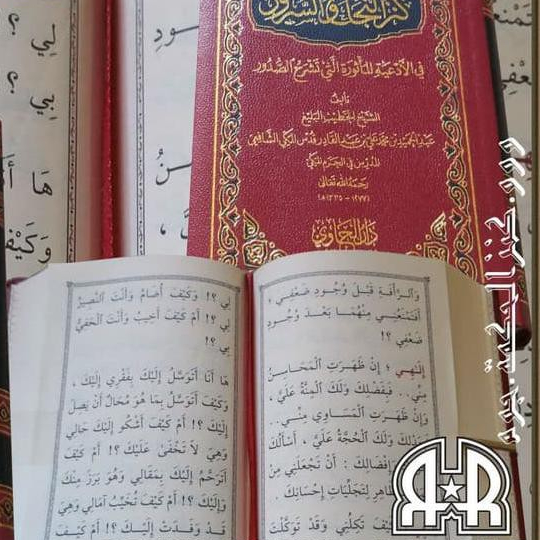 كنز النجاح والسرور
في الأدعية المأثورة التي تشرح الصدور
تأليف
الشيخ الخطيب البليغ
عبد الحميد بن محمد علي بن عبد القادر قدس المكي الشافعي
المدرس في الحرم المكي
رحمه الله تعالى
(١٢٧٧ - ١٣٣٥هـ)
دار الحاوي
وَالرَّأْفَةِ قَبْلَ وُجُودِ ضَعْفِي ،
أَفَتَمْنَعُنِي مِنْهُمَا بَعْدَ وُجُودِ
ضَعْفِي ؟!
إِلَهِي ؛ إِنْ ظَهَرَتِ الْمَحَاسِنُ
مِنِّي.. فَبِفَضْلِكَ وَلَكَ الْمِنَّةُ عَلَيَّ ،
وَإِنْ ظَهَرَتِ الْمَسَاوِي مِنِّي..
فَبِعَدْلِكَ وَلَكَ الْحُجَّةُ عَلَيَّ ، أَسْأَلُكَ
إِفْضَالِكَ : أَنْ تَجْعَلَنِي مِنْ
لِتَجَلِّيَاتِ إِحْسَانِكَ..
كَيْفَ تَكِلُنِي وَقَدْ تَوَكَّلْتَ
لِي ؟! وَكَيْفَ أُضَامُ وَأَنْتَ النَّصِيرُ
لِي ؟! أَمْ كَيْفَ أَخِيبُ وَأَنْتَ الْحَفِيُّ
بِي ؟!
هَا أَنَا أَتَوَسَّلُ إِلَيْكَ بِفَقْرِي إِلَيْكَ ،
وَكَيْفَ أَتَوَسَّلُ بِمَا هُوَ مُحَالٌ أَنْ يَصِلَ
إِلَيْكَ ؟! أَمْ كَيْفَ أَشْكُو إِلَيْكَ حَالِي
وَهِيَ لَا تَخْفَى عَلَيْكَ ؟! أَمْ كَيْفَ
أُتَرْجِمُ إِلَيْكَ بِمَقَالِي وَهُوَ بَرَزَ مِنْكَ
وَإِلَيْكَ ؟! أَمْ كَيْفَ تُخَيِّبُ آمَالِي وَهِيَ
قَدْ وَفَدَتْ إِلَيْكَ ؟! أَمْ كَيْفَ